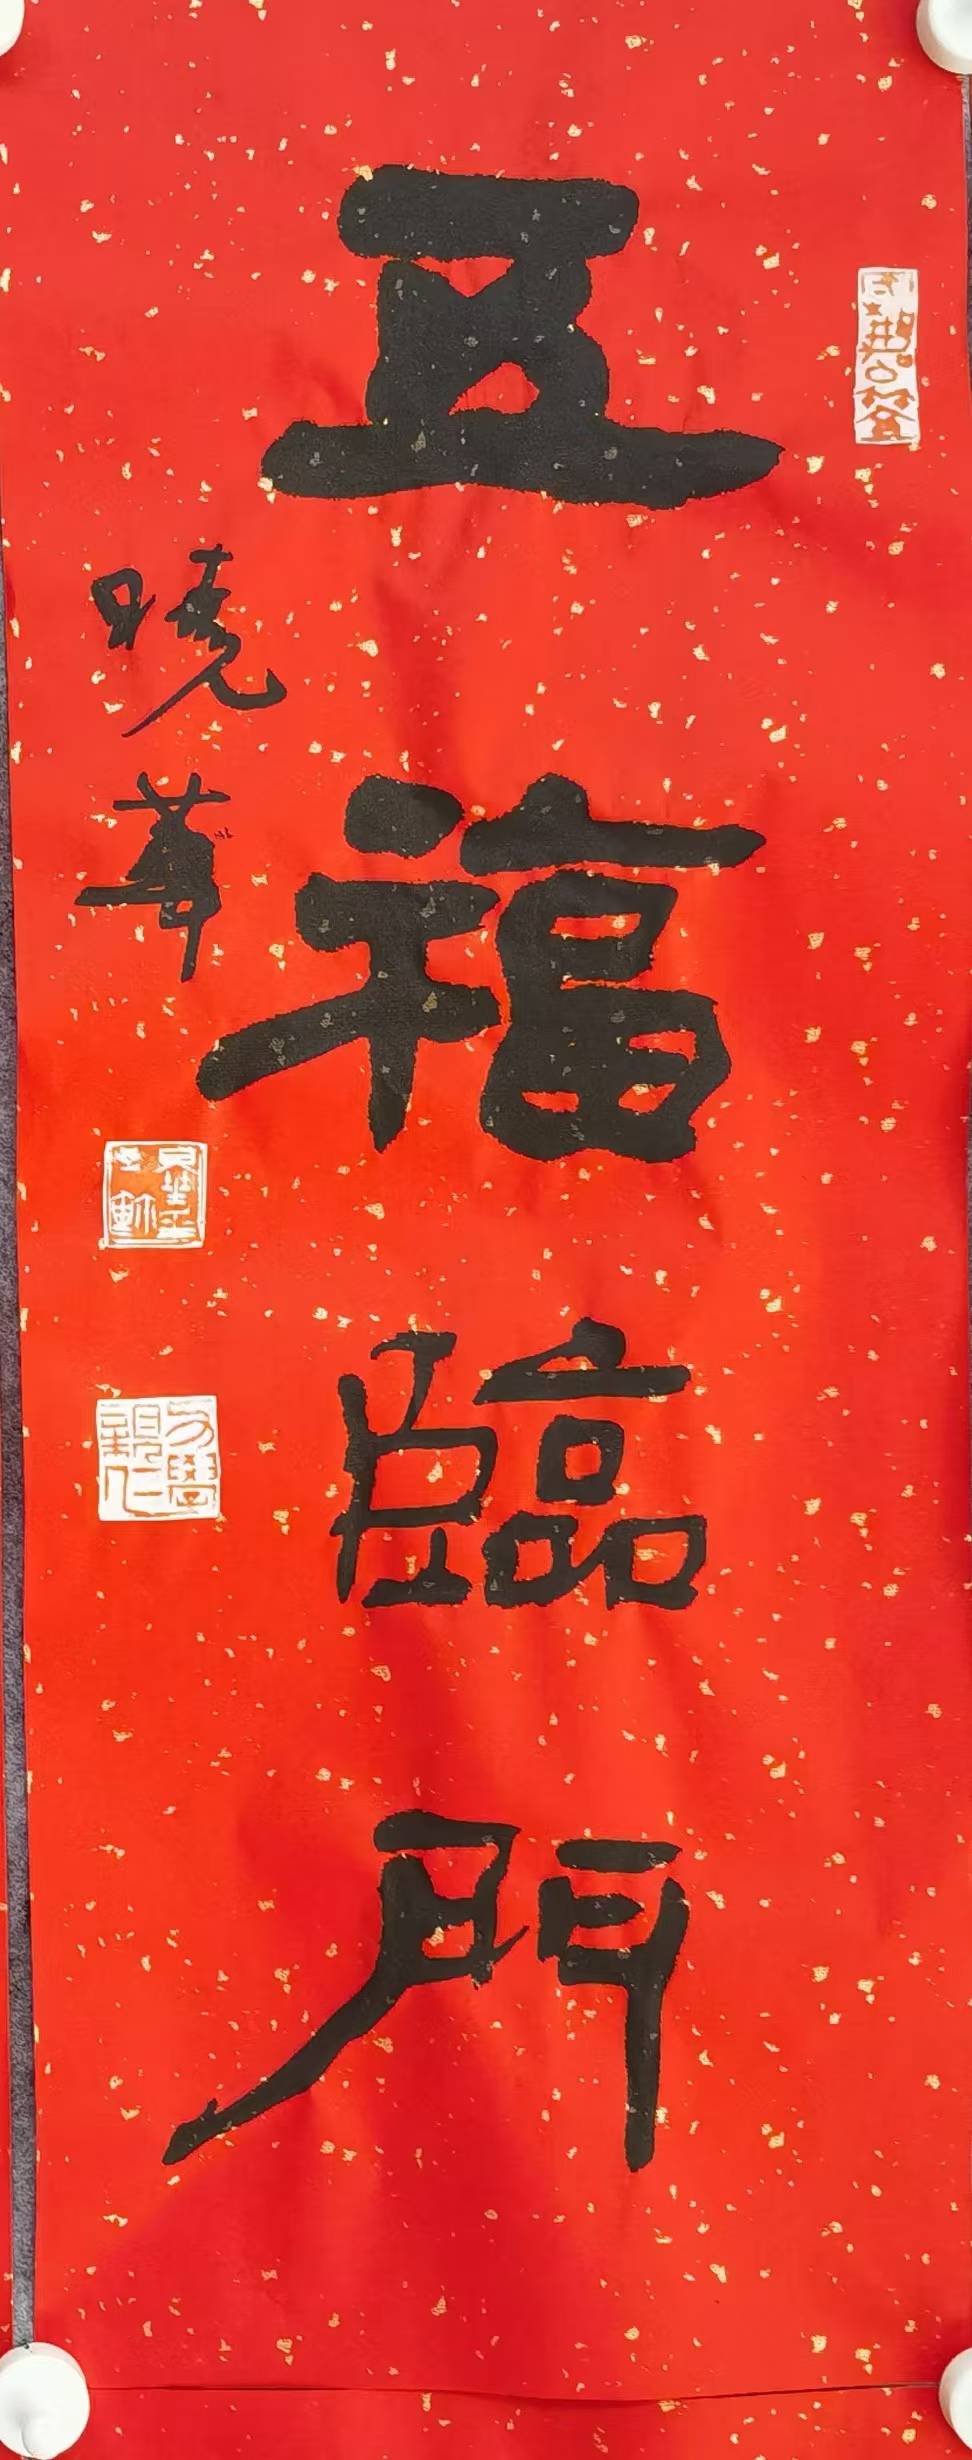 五福臨門
曉華